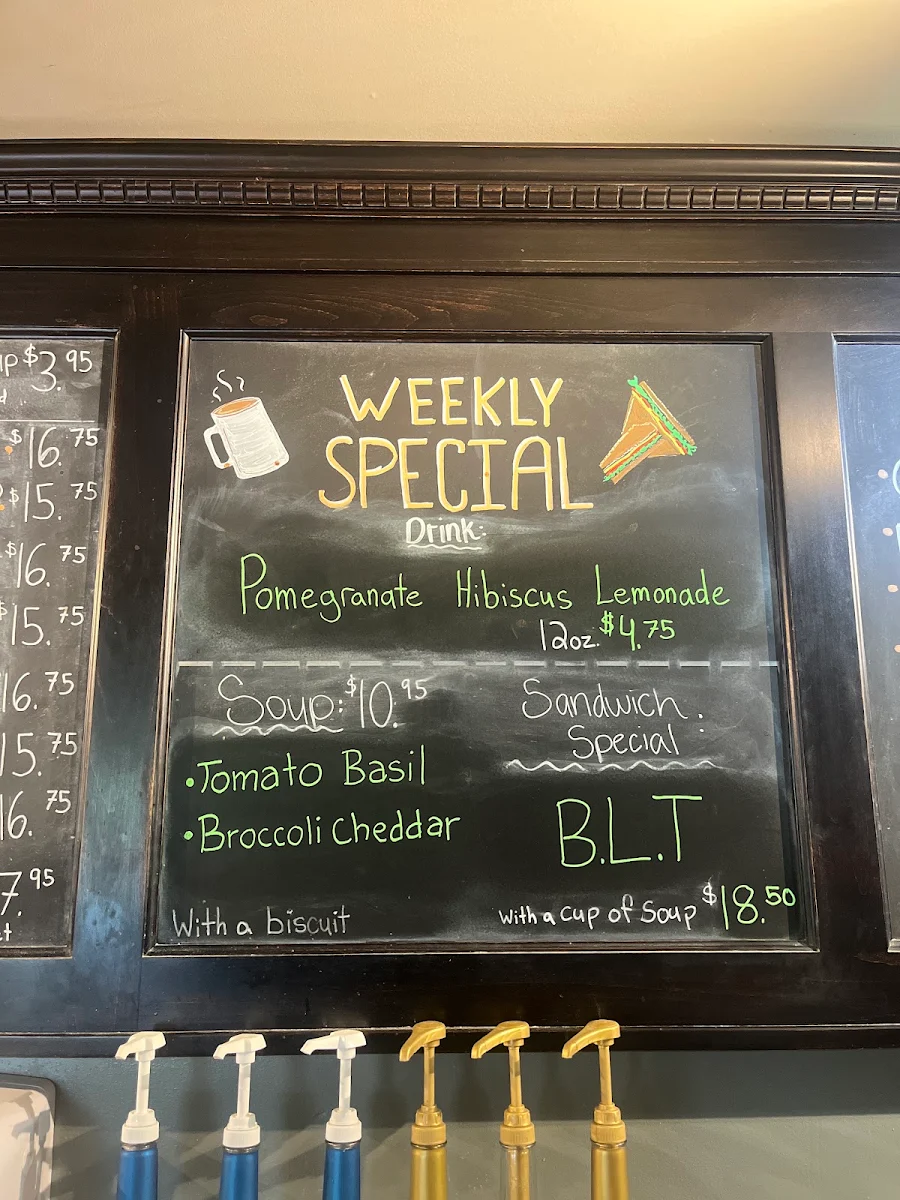 $3.95
$16.75
$15.75
$16.75
$15.75
16.75
15.75
16.75
7.95
WEEKLY
SPECIAL
Drink:
Pomegranate Hibiscus Lemonade
12oz. $4.75
Soup: $10.95
• Tomato Basil
• Broccoli Cheddar
With a biscuit
Sandwich
Special:
B.L.T
With a cup of Soup $18.50